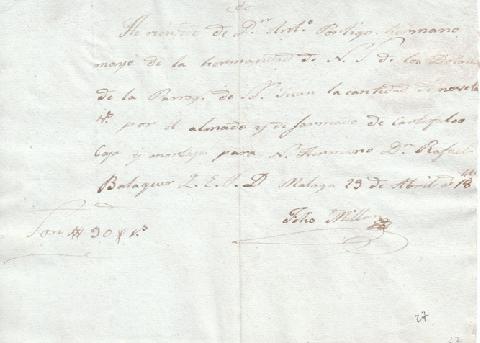 He recivido de Dn. Anto. Postigo hermano
mayor de la hermandad de N. S. de los Dolores
de la Parroq. de Sn. Juan la cantidad de noventa
rs. por el almado y de
Caja y mortaja para No. Hermano Dn. Rafael
Balaguer Q. E. P. D. Malaga 23 de Abril de 18
Son # 90 # rs.
27
27